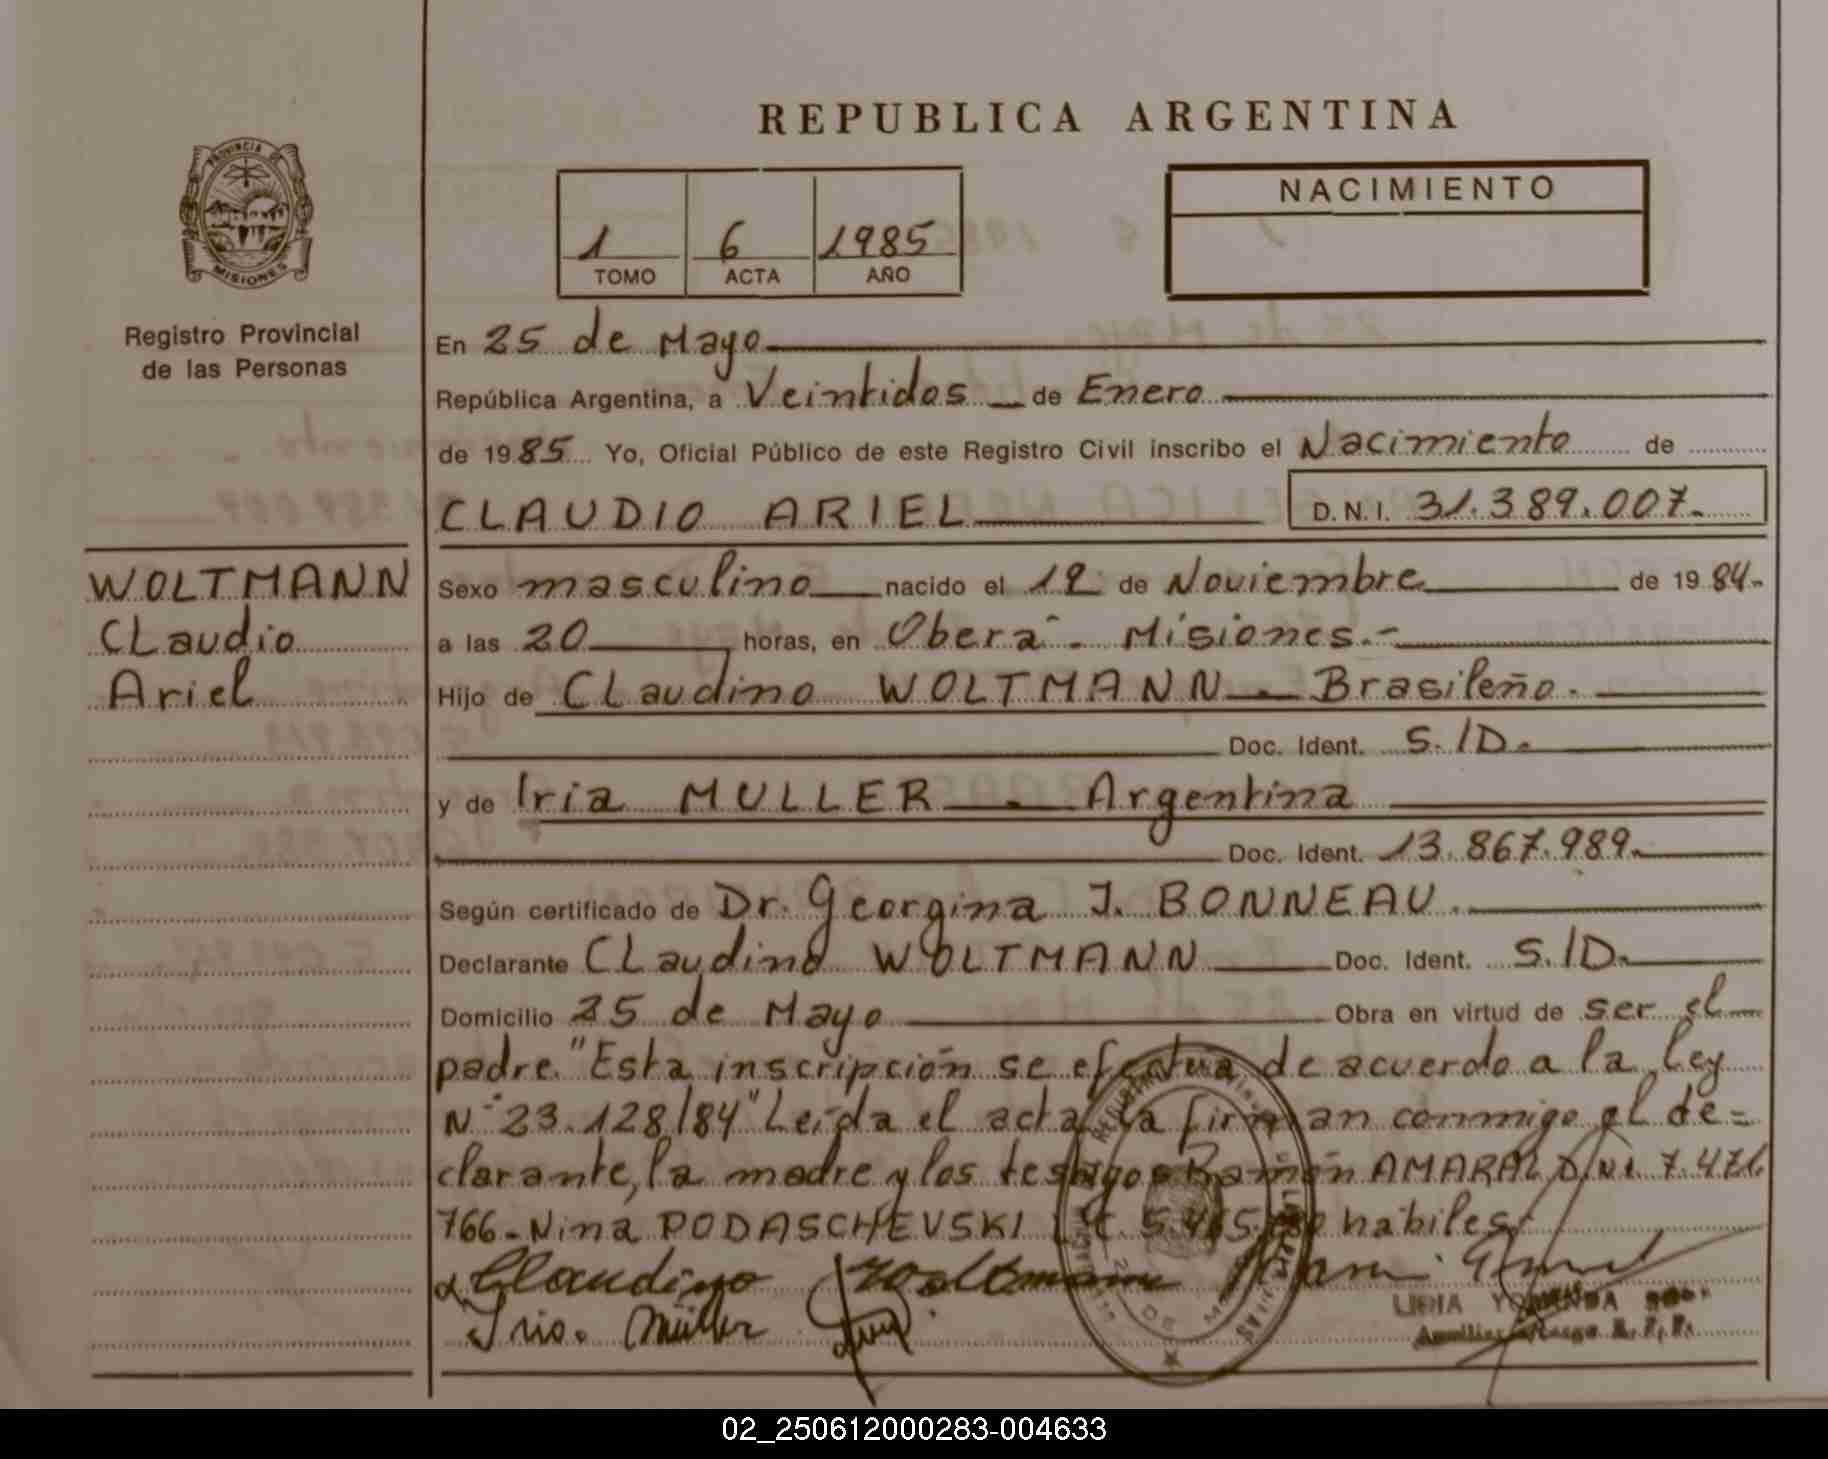 REPUBLICA ARGENTINA
PROVINCIA DE
MISIONES
Registro Provincial
de las Personas
1 6 1985
TOMO ACTA AÑO
NACIMIENTO
En 25 de Mayo
República Argentina, a Veintidos de Enero
de 1985 Yo, Oficial Público de este Registro Civil inscribo el Nacimiento de
CLAUDIO ARIEL D.N.I. 31.389.007.-
WOLTMANN
Claudio
Ariel
Sexo masculino nacido el 12 de Noviembre de 1984.-
a las 20 horas, en Oberá - Misiones.-
Hijo de Claudino WOLTMANN - Brasileño.
Doc. Ident. S./D.
y de Iria MULLER - Argentina
Doc. Ident. 13.867.989.
Según certificado de Dr. Georgina J. BONNEAU.
Declarante Claudino WOLTMANN Doc. Ident. S./D.
Domicilio 25 de Mayo Obra en virtud de ser el
padre. "Esta inscripción se efectua de acuerdo a la Ley
N° 23.128/84" Leída el acta la firman conmigo el de=
clarante, la madre y los testigos Ramón AMARAL D.N.I. 7.471.
766- Nina PODASCHEVSKI habiles.
Claudino Woltmann
Müller
02_250612000283-004633